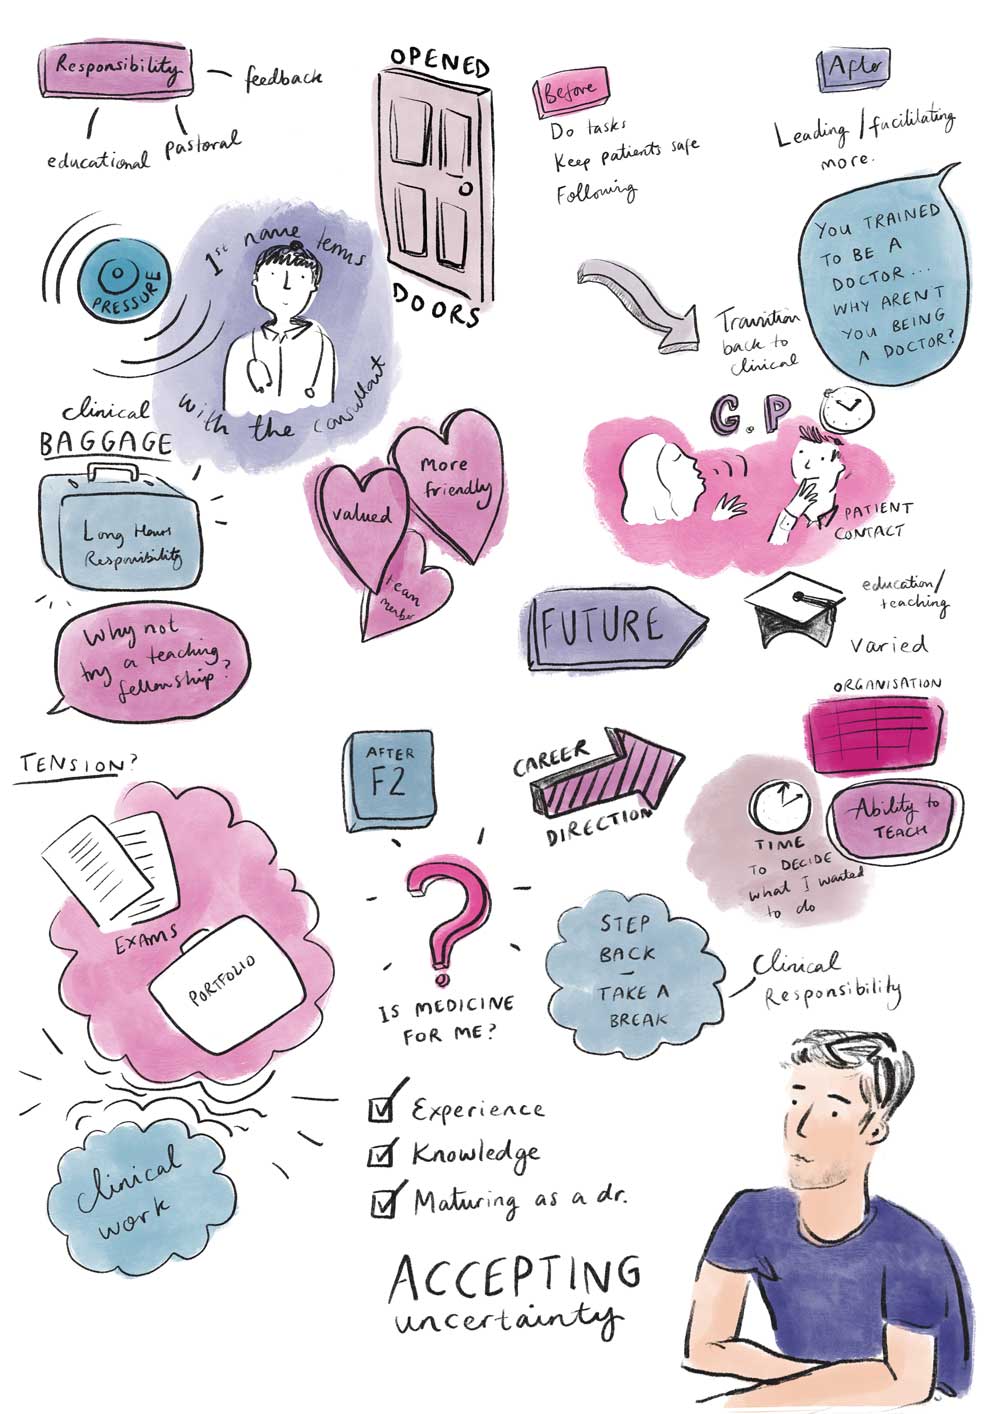 Responsibility
feedback
educational
pastoral
OPENED
DOORS
Before
Do tasks
Keep patients safe
Following
After
Leading / facilitating
more.
YOU TRAINED
TO BE A
DOCTOR...
WHY AREN'T
YOU BEING
A DOCTOR?
PRESSURE
1st name terms
with the consultant
Transition
back to
clinical
clinical
BAGGAGE
Long Hours
Responsibility
valued
More
friendly
team
member
G.P
PATIENT
CONTACT
Why not
try a teaching
fellowship?
FUTURE
education/
teaching
varied
ORGANISATION
Ability to
TEACH
TENSION?
EXAMS
PORTFOLIO
clinical
work
AFTER
F2
CAREER
DIRECTION
TIME
TO DECIDE
what I wanted
to do
IS MEDICINE
FOR ME?
STEP
BACK
–
TAKE A
BREAK
Clinical
Responsibility
Experience
Knowledge
Maturing as a dr.
ACCEPTING
uncertainty